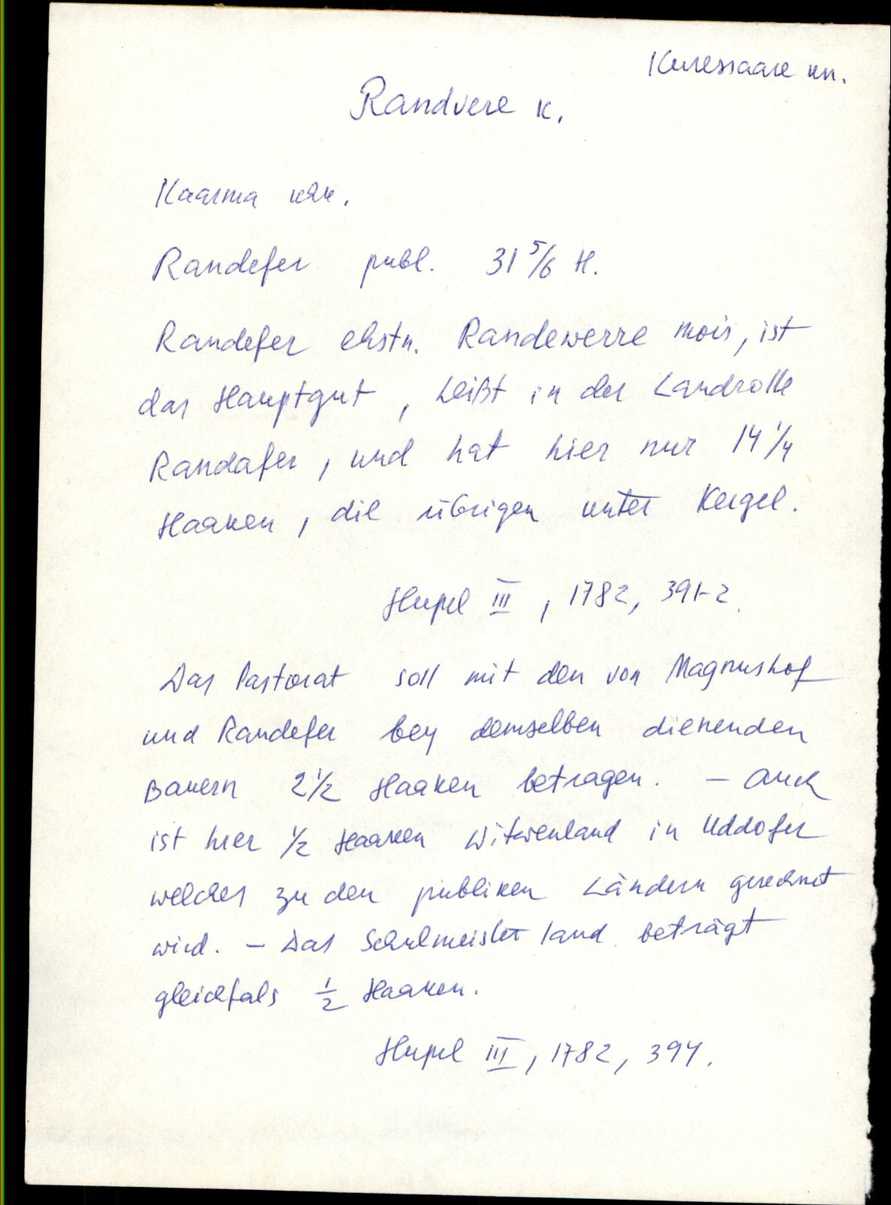 Kuressaare kn.
Randvere k.
Kaarma khk.
Randefer publ. 31 5/6 H.
Randefer ehstn. Randewerre mois, ist
das Hauptgut, heißt in der Landrolle
Randafer, und hat hier nur 14 1/4
Haaken, die übrigen unter Kergel.
Hupel III, 1782, 391-2.
Das Pastorat soll mit den von Magnushof
und Randefer bey demselben dienenden
Bauern 2 1/2 Haaken betragen. – Auch
ist hier 1/2 Haaken Witwenland in Uddofer
welches zu den publiken Ländern gerechnet
wird. – Das Schulmeister land beträgt
gleichfals 1/2 Haaken.
Hupel III, 1782, 394.